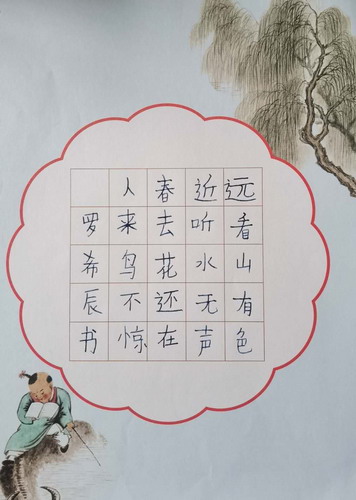 远看山有色
近听水无声
春去花还在
人来鸟不惊
罗希辰书